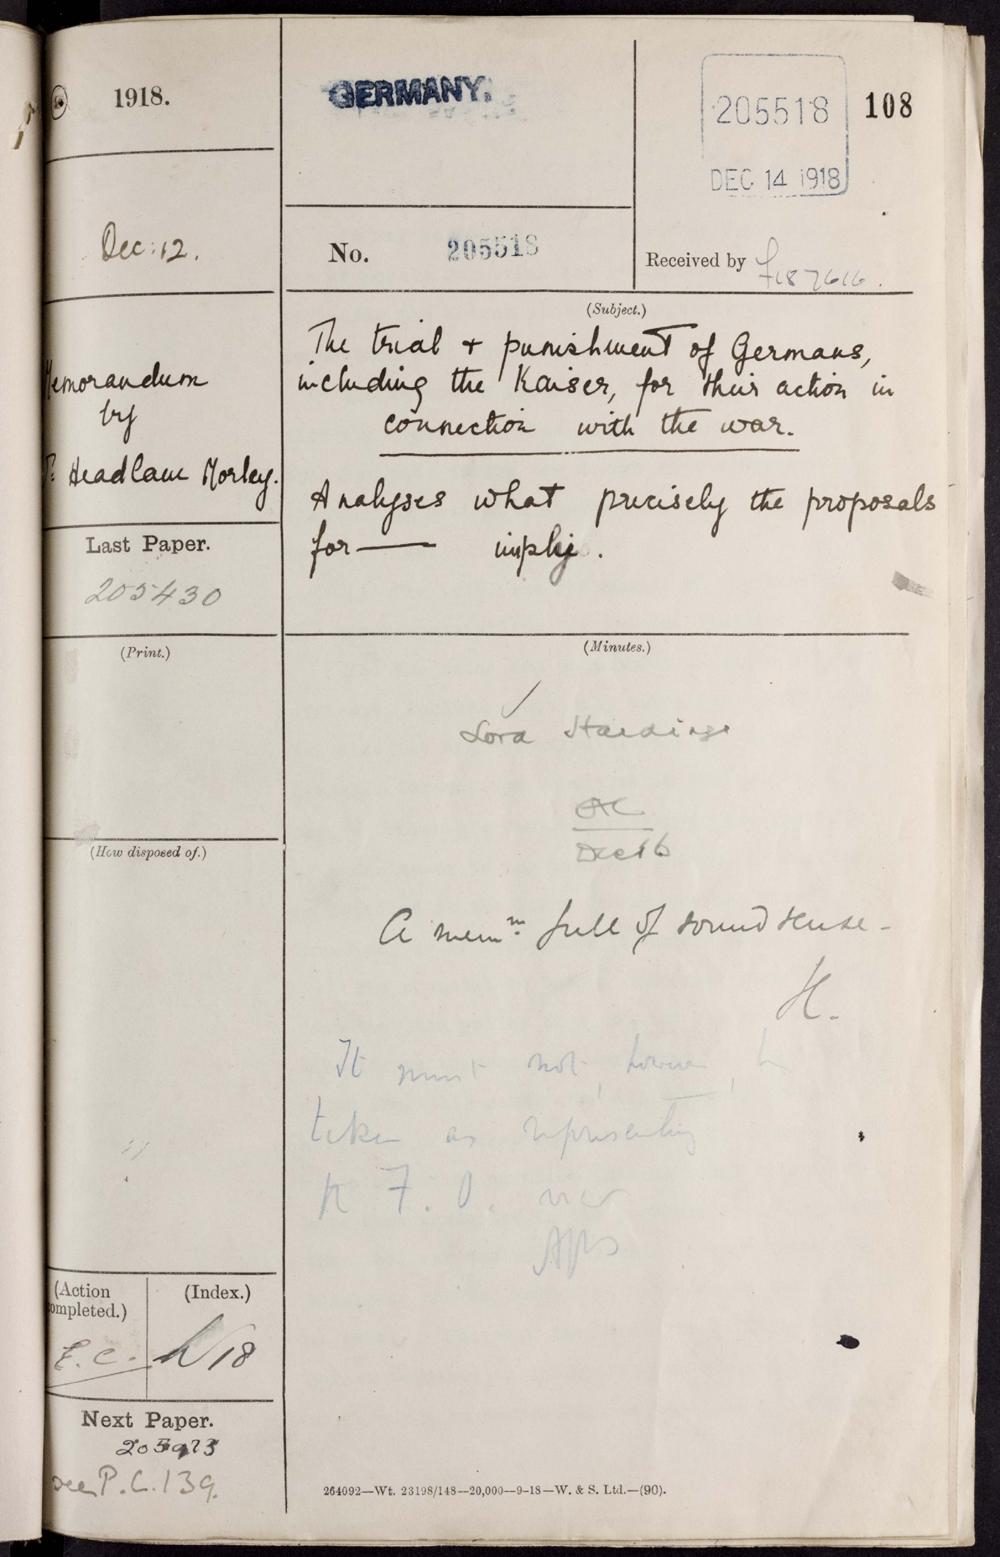 1918.
GERMANY.
205518
108
DEC 14 1918
Dec: 12.
No. 205518
Received by
(Subject.)
The trial + punishment of Germans,
including the Kaiser, for their action in
connection with the war.
Analyses what precisely the proposals
for — imply.
Memorandum
by
Headlam Morley.
Last Paper.
205430
(Print.)
(How disposed of.)
(Minutes.)
Lord Hardinge
Dec 16
A memm: full of sound sense -
H.
It must not, however, be
taken as representing
F. O. view
(Action
completed.)
(Index.)
E.C.
18
Next Paper.
205973
see P.C.139.
264092—Wt. 23198/148—20,000—9-18—W. & S. Ltd.—(90).